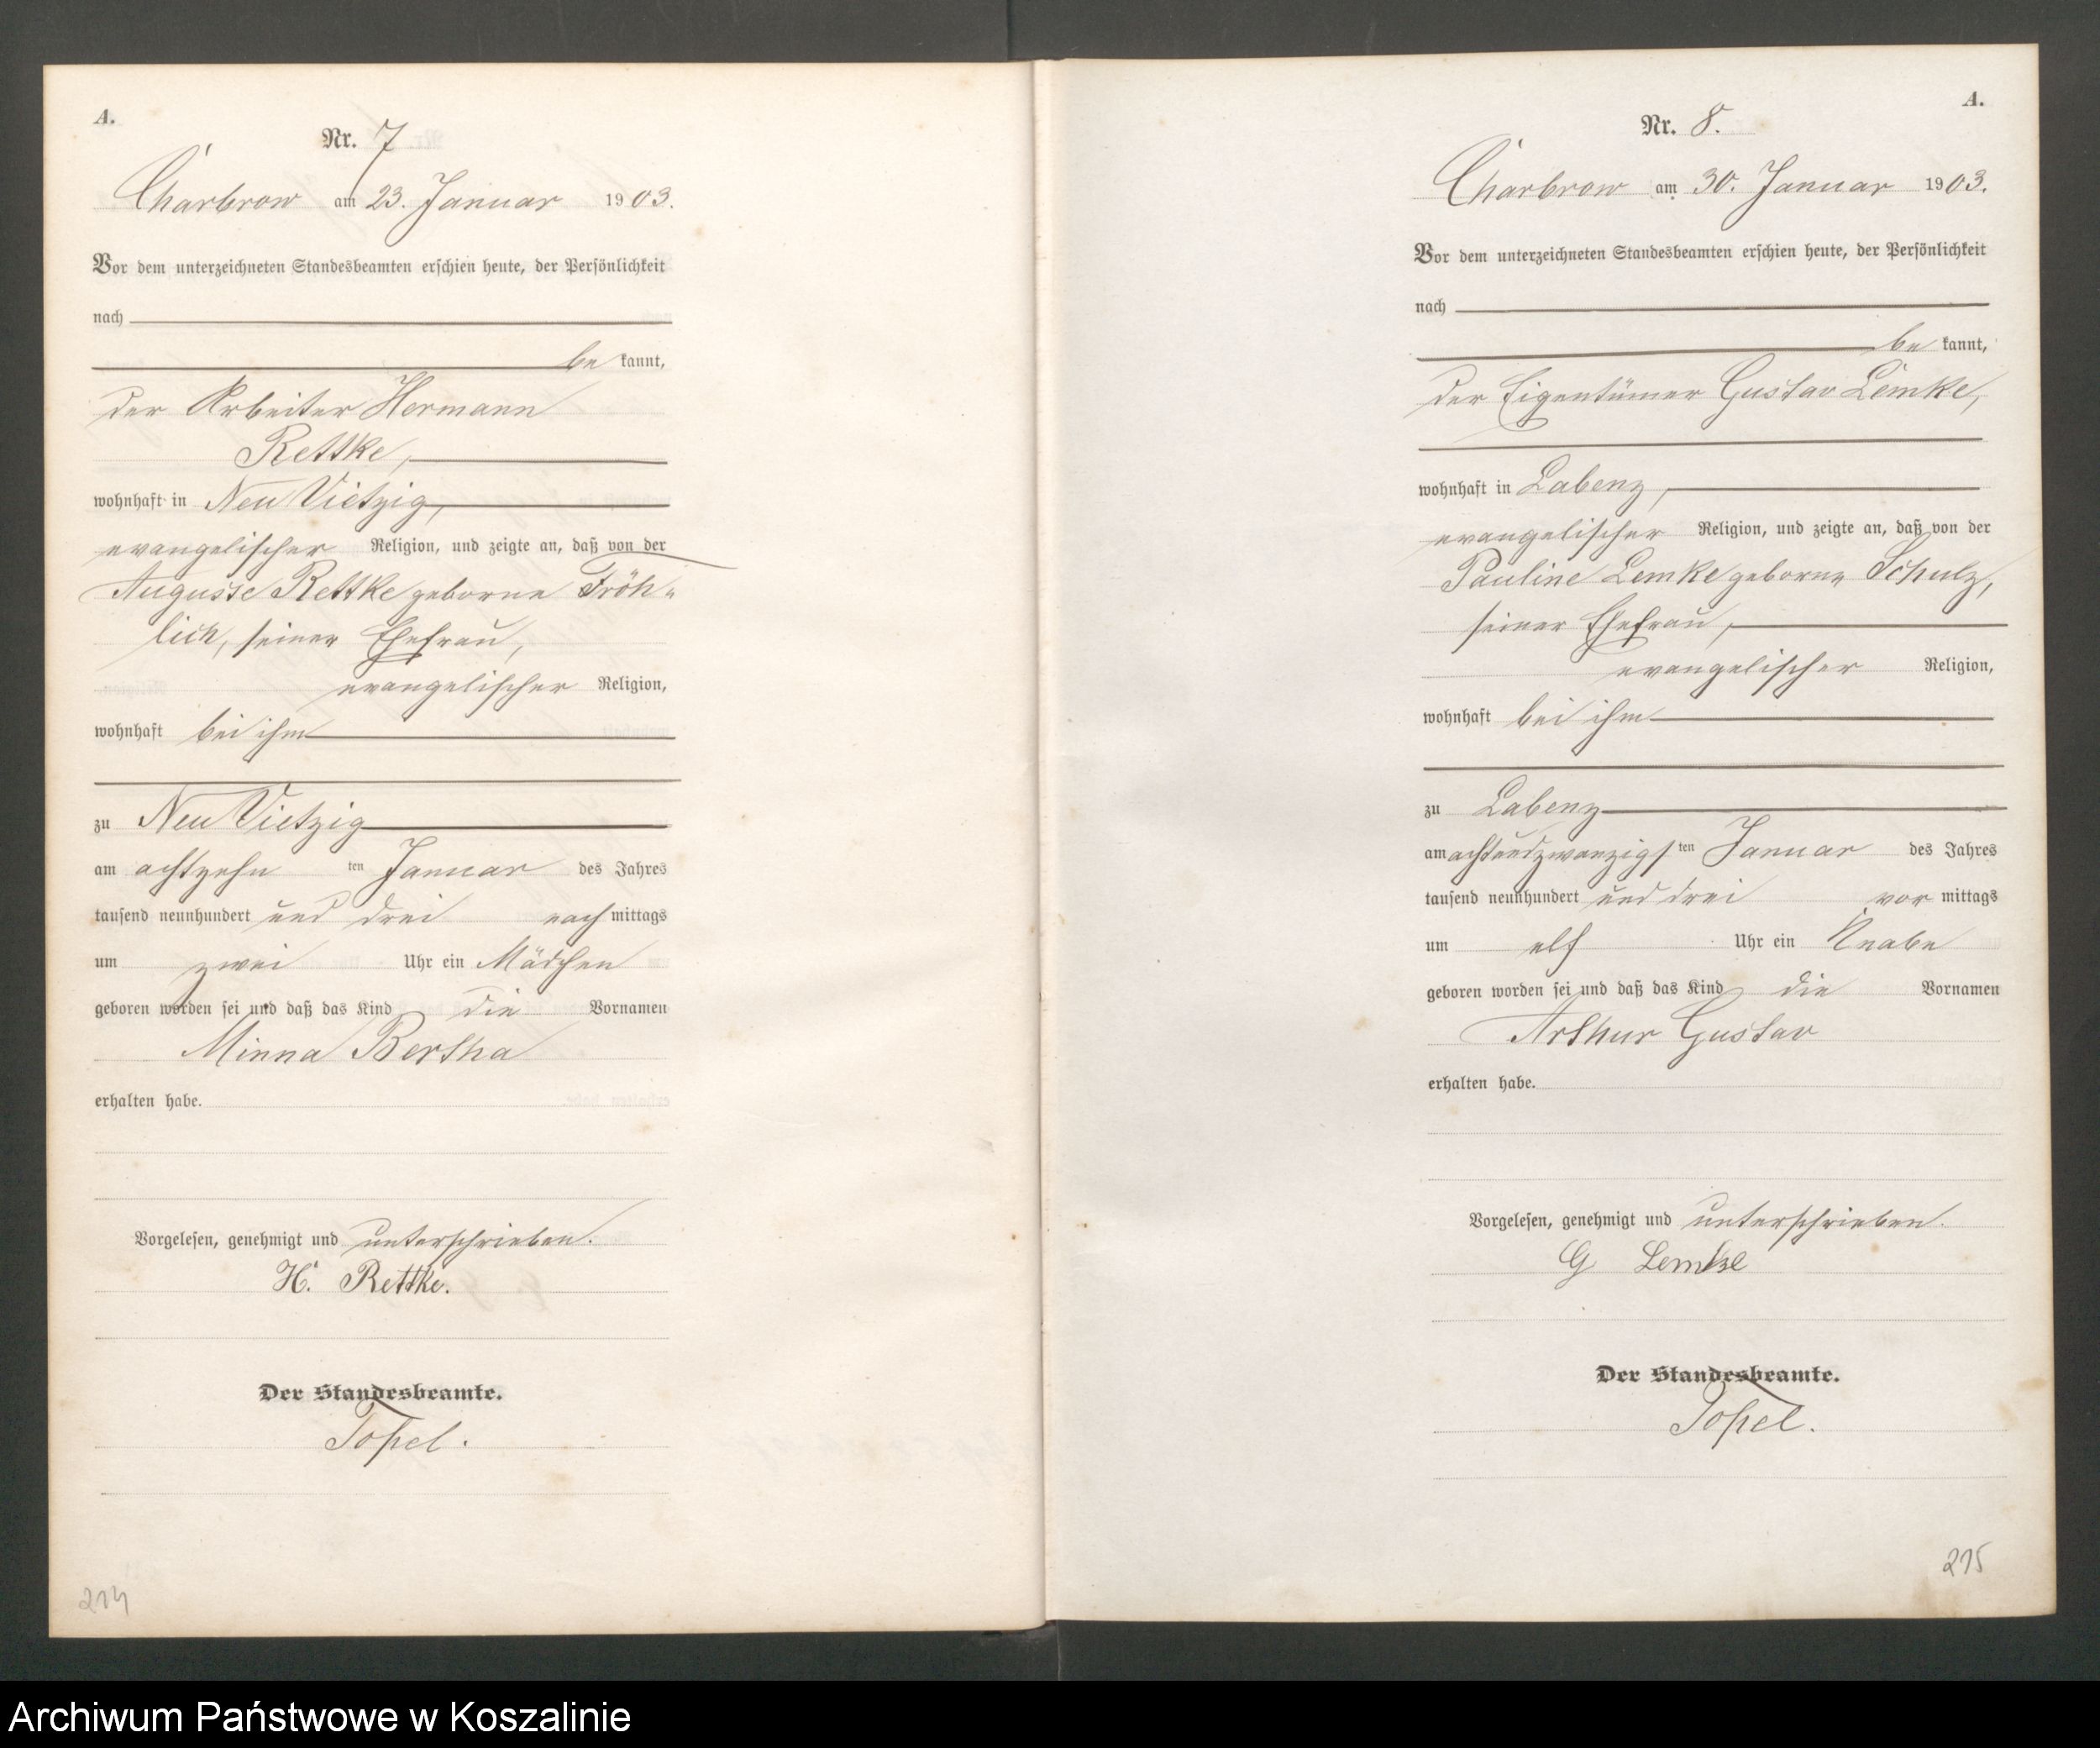 A.
Nr. 7
Charbrow am 23. Januar 1903.
Vor dem unterzeichneten Standesbeamten erschien heute, der Persönlichkeit
nach
be kannt,
der Arbeiter Hermann
Rettke,
wohnhaft in Neu Vietzig,
evangelischer Religion, und zeigte an, daß von der
Auguste Rettke geborne Fröh-
lich, seiner Ehefrau,
evangelischer Religion,
wohnhaft bei ihm
zu Neu Vietzig
am achtzehn ten Januar des Jahres
tausend neunhundert und drei nach mittags
um zwei Uhr ein Mädchen
geboren worden sei und daß das Kind die Vornamen
Minna Bertha
erhalten habe.
Vorgelesen, genehmigt und unterschrieben.
H. Rettke.
Der Standesbeamte.
Topel.
214
A.
Nr. 8.
Charbrow am 30. Januar 1903.
Vor dem unterzeichneten Standesbeamten erschien heute, der Persönlichkeit
nach
be kannt,
der Eigentümer Gustav Lemke,
wohnhaft in Labenz,
evangelischer Religion, und zeigte an, daß von der
Pauline Lemke geborne Schulz,
seiner Ehefrau,
evangelischer Religion,
wohnhaft bei ihm
zu Labenz
am achtundzwanzigs ten Januar des Jahres
tausend neunhundert und drei vor mittags
um elf Uhr ein Knabe
geboren worden sei und daß das Kind die Vornamen
Arthur Gustav
erhalten habe.
Vorgelesen, genehmigt und unterschrieben.
G Lemke
Der Standesbeamte.
Topel.
215
Archiwum Państwowe w Koszalinie